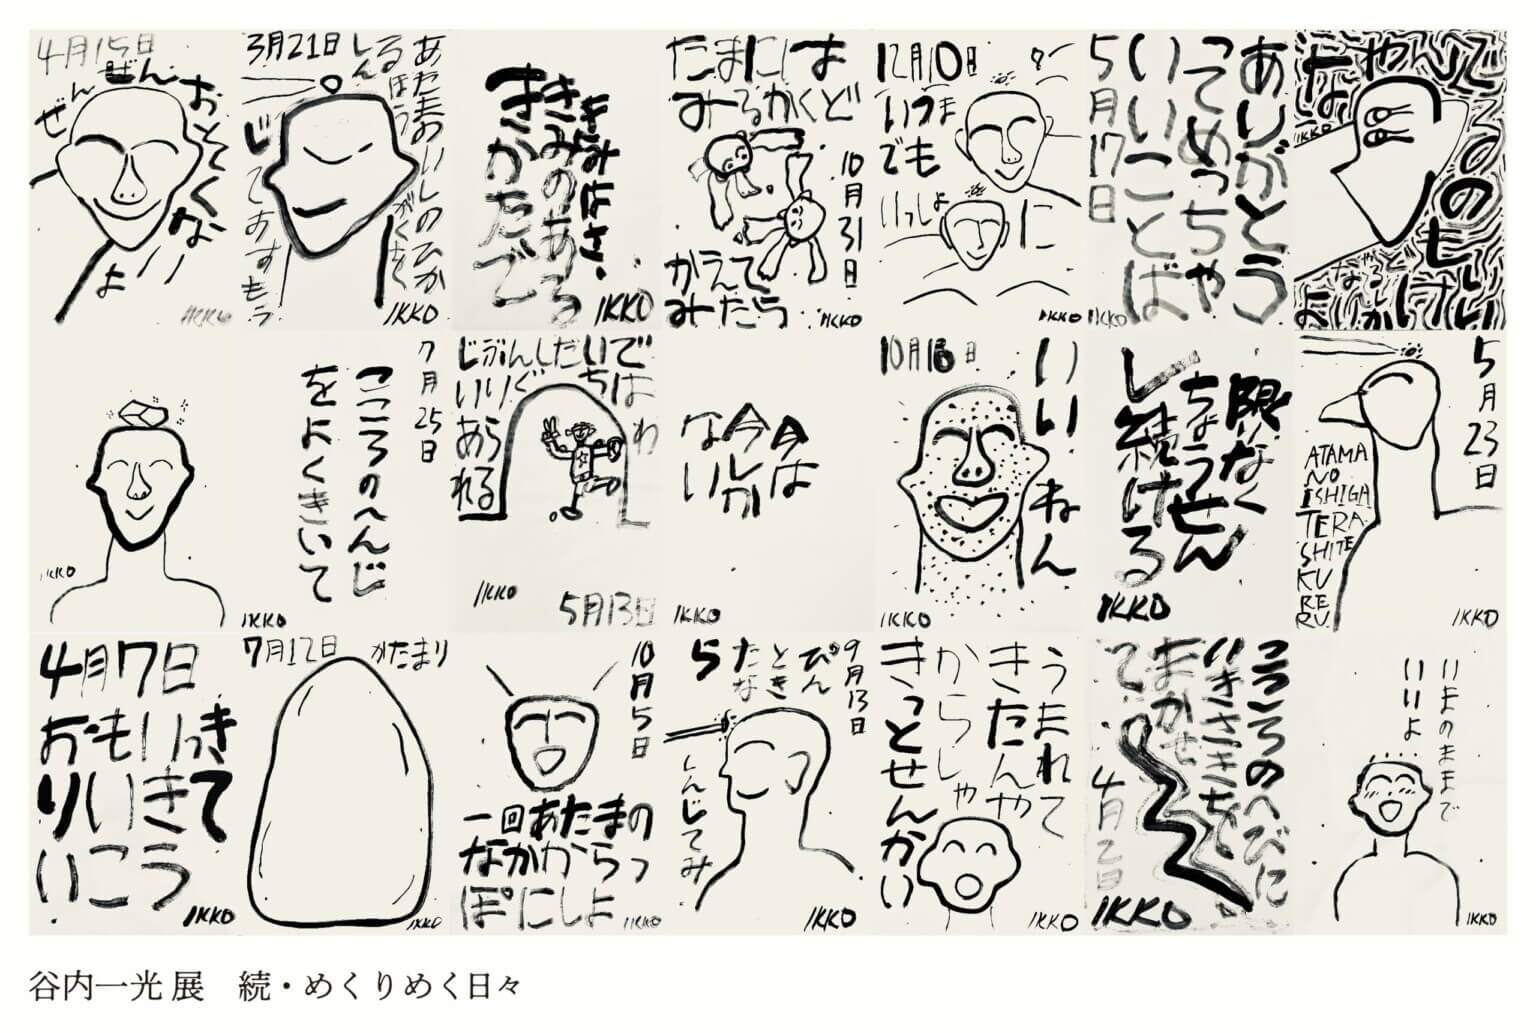 4月15日
ぜんぜん
おそくない
よ
IKKO
3月21日
あたまのいしのひか
るほう
しん
じてすすもう
IKKO
きみはさ、
きみのある
きかたで
IKKO
たまには
みるかくど
10月31日
かえて
みたら
IKKO
12月10日
いつま
でも
いっしょ
に
IKKO
ありがとう
ってめっちゃ
いいことば
5月17日
IKKO
なやんで
るのも
けいけん
よ
IKKO
IKKO
7月25日
こころのへんじ
をよくきいて
IKKO
じぶんしだいで
いりぐちは
あらわ
れる
IKKO
5月13日
今は
今しか
ない
IKKO
10月18日
いい・ねん
IKKO
限りなく
ちょうせん
し続ける
IKKO
5月23日
ATAMA
NO
ISHIGA
TERA
SHITE
KU
RE
RU.
IKKO
4月7日
おもいっき
りいきて
いこう
IKKO
7月12日
かたまり
IKKO
10月5日
一回あたまの
なかからっ
ぽにしよ
IKKO
9月13日
ぴん
とき
たな
ら
しんじてみ
IKKO
うまれて
きたんや
からしゃ
きっとせんかい
IKKO
こころのへびに
いきさきを
まかせ
て
4月2日
IKKO
いまのままで
いいよ
IKKO
谷内一光 展　続・めくりめく日々